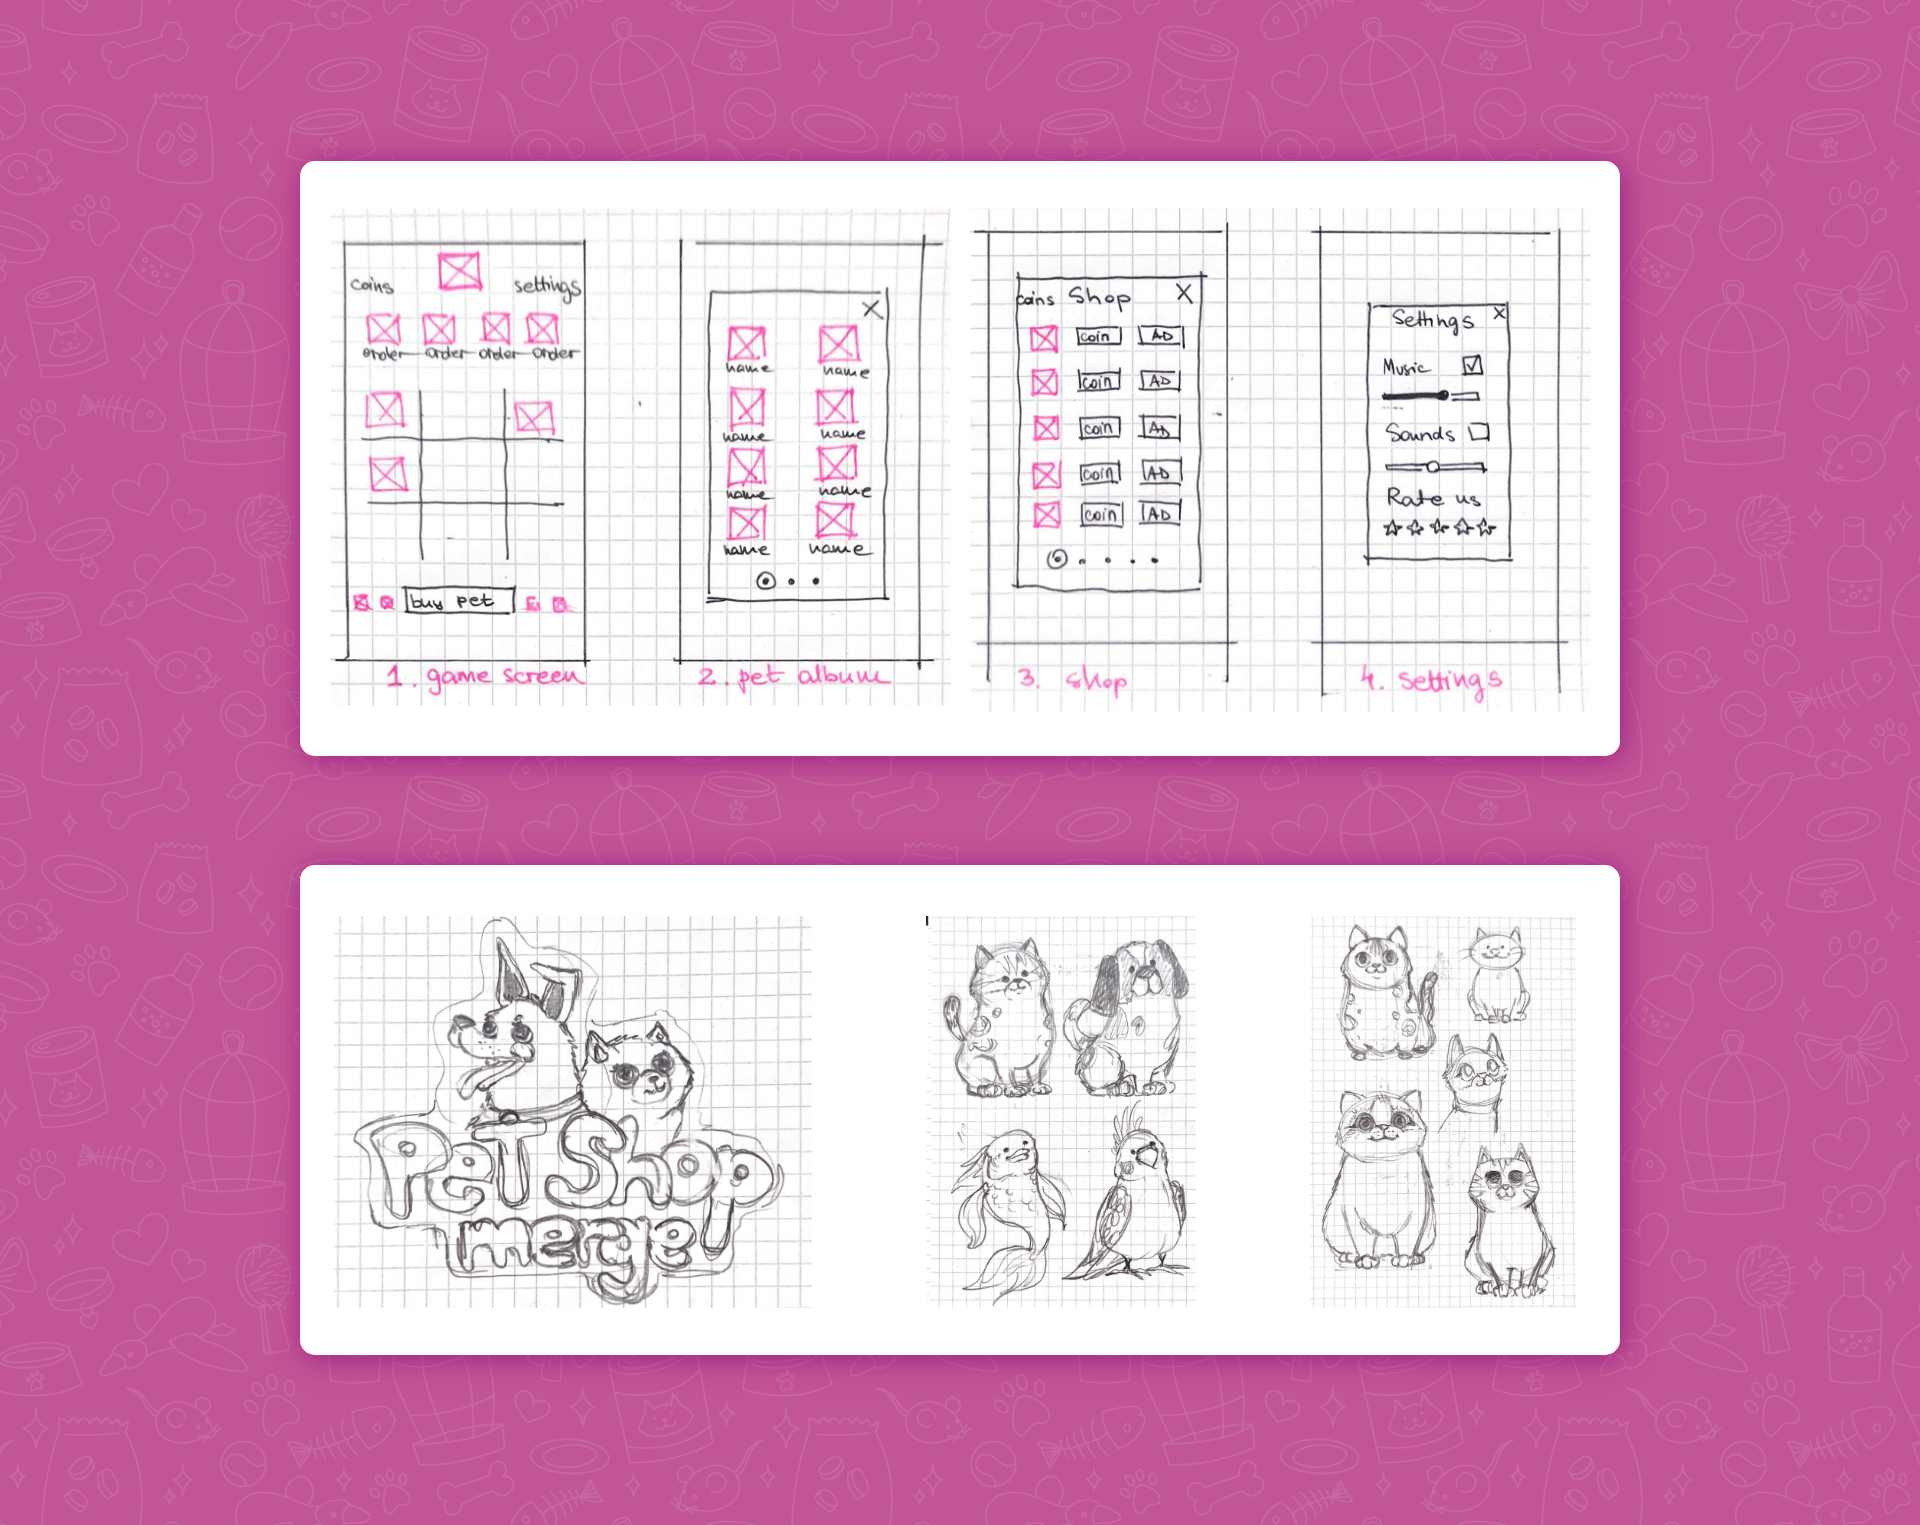 coins
settings
order order order order
buy pet
1. game screen
X
name name
name name
name name
name name
2. pet album
coins Shop X
coin AD
coin AD
coin AD
coin AD
coin AD
3. shop
Settings X
Music
Sounds
Rate us
4. settings
Pet Shop
merge